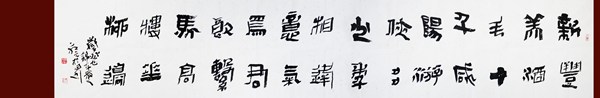 新豐
美酒
斗十
千咸
陽游
俠多
少年
相逢
意氣
爲君
飲繫
馬高
樓垂
柳邊